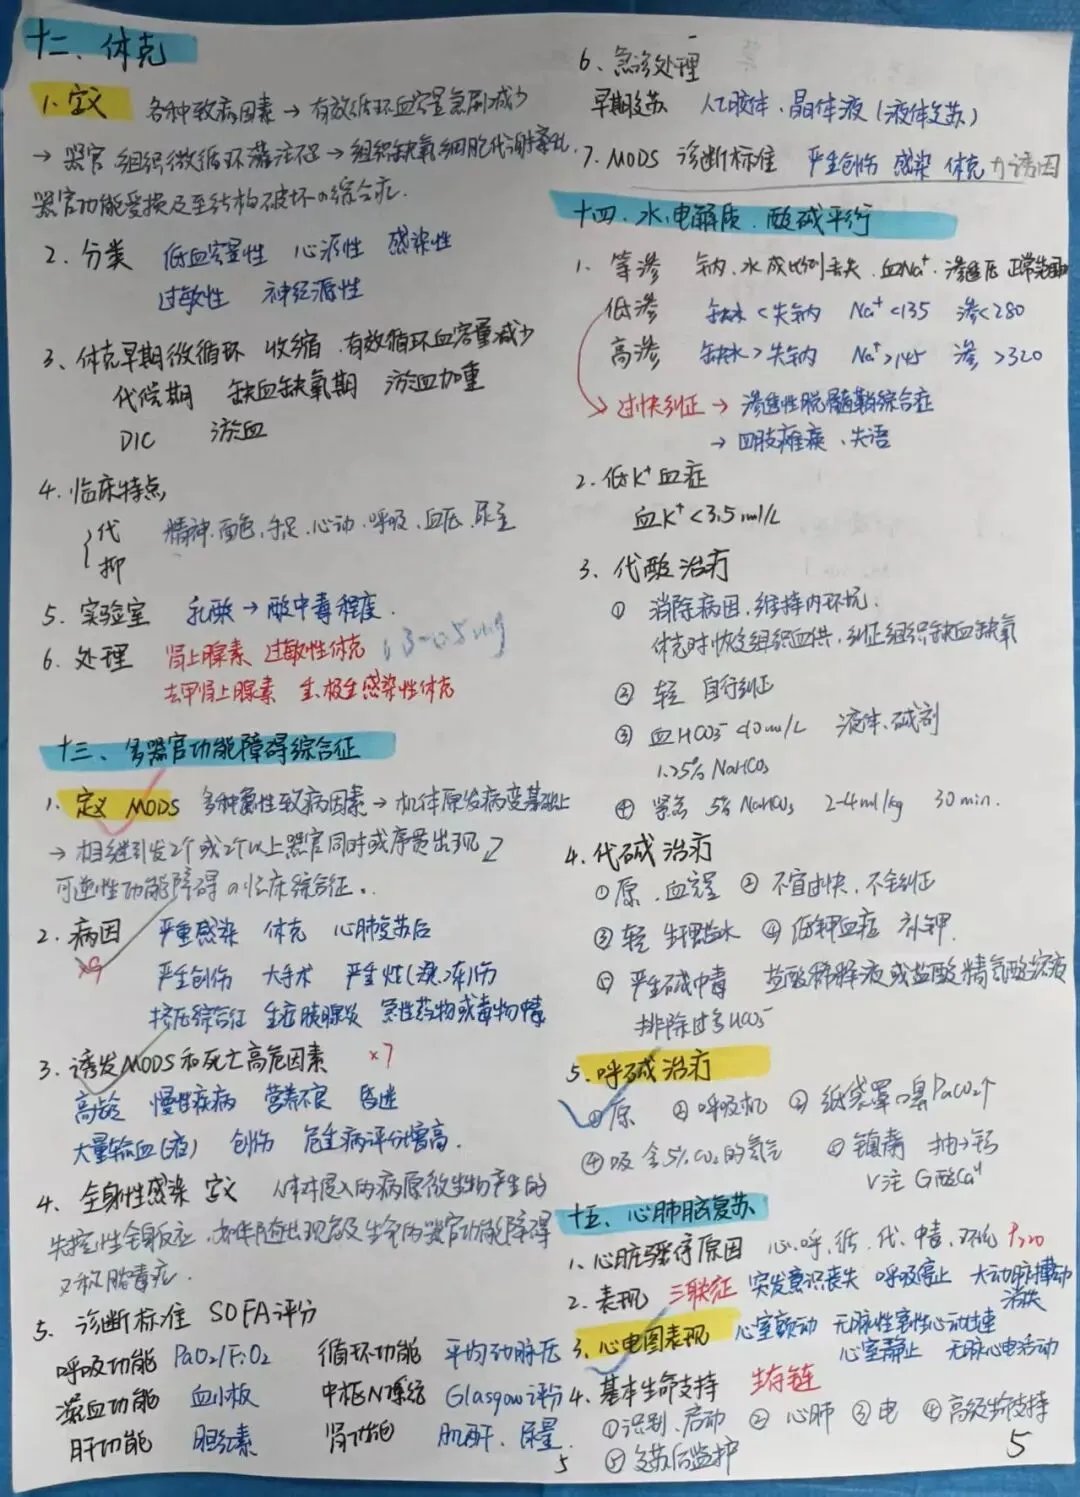 十二、休克
1、定义 各种致病因素→有效循环血容量急剧减少
→器官组织微循环灌注不足→组织缺氧细胞代谢紊乱,
器官功能受损及至结构破坏の综合症.
2、分类 低血容量性 心源性 感染性
过敏性 神经源性
3、休克早期微循环 收缩 有效循环血容量减少
代偿期 缺血缺氧期 淤血加重
DIC 淤血
4、临床特点
代 精神.面色.手足.心动.呼吸.血压.尿量
抑
5、实验室 乳酸→酸中毒程度.
6、处理 肾上腺素 过敏性休克 0.3-0.5mg
去甲肾上腺素 感染性休克
十三、多器官功能障碍综合征
1、定义 MODS 多种急性致病因素→机体原发病变基础上
→相继引发2个或2个以上器官同时或序贯出现
可逆性功能障碍の临床综合征.
2、病因 严重感染 休克 心肺复苏后
x9 严重创伤 大手术 严重烧(烫、冻)伤
挤压综合征 重症胰腺炎 急性药物或毒物中毒
3、诱发MODS和死亡高危因素 x7
高龄 慢性疾病 营养不良 昏迷
大量输血(液) 创伤 危重病评分增高.
4、全身性感染 定义 人体对侵入的病原微生物产生的
失控性全身反应,如伴随出现危及生命的器官功能障碍
又称脓毒症.
5、诊断标准 SOFA评分
呼吸功能 PaO2/FiO2 循环功能 平均动脉压
凝血功能 血小板 中枢N系统 Glasgow评分
肝功能 胆红素 肾功能 肌酐、尿量.
5
6、急诊处理
早期复苏 人工胶体、晶体液(液体复苏)
7、MODS 诊断标准 严重创伤 感染 休克 为诱因
十四.水、电解质.酸碱平衡
1、等渗 钠、水成比例丢失.血Na+.渗透压 正常范围
低渗 缺水<失钠 Na+<135 渗<280
高渗 缺水>失钠 Na+>145 渗>320
过快纠正→渗透性脱髓鞘综合症
→四肢瘫痪、失语
2、低K+血症
血K+<3.5ml/L
3、代酸治疗
① 消除病因,维持内环境.
休克时恢复组织血供,纠正组织缺血缺氧
② 轻 自行纠正
③ 血HCO3-<10m/L 液体、碱剂
1.25% NaHCO3
④ 紧急 5% NaHCO3 2-4ml/kg 30min.
4、代碱治疗
①原.血容量 ②不宜过快、不全纠正
③轻 生理盐水 ④低钾血症 补钾.
⑤严重碱中毒 盐酸稀释液或盐酸精氨酸溶液
排除过多HCO3-
5、呼碱治疗
①原 ②呼吸机 ③纸袋罩口鼻PaCO2↑
④吸含5%CO2的氧气 ⑤镇静 抽→钙
V注 G酸Ca
十五、心肺脑复苏
1、心脏骤停原因 心.呼.循.代、中毒.环境 P220
2、表现 三联征 突发意识丧失 呼吸停止 大动脉搏动
消失
3、心电图表现 心室颤动 无脉性室性心动过速
心室静止 无脉心电活动
4、基本生命支持 生存链
①识别、启动 ②心肺 ③电 ④高级生命支持
⑤复苏后监护
5